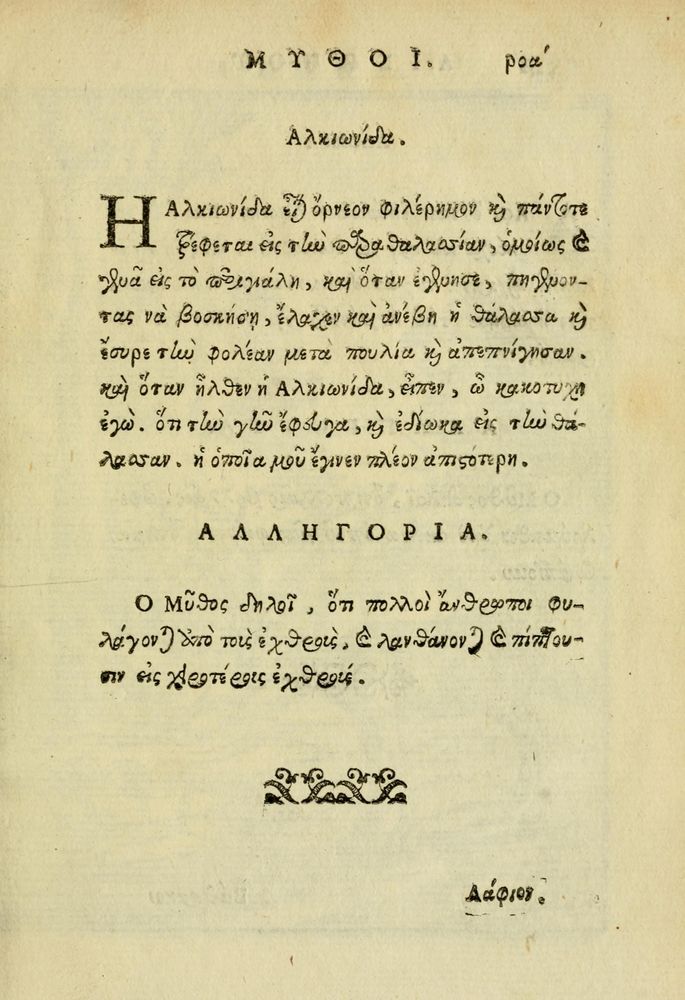 ΜΥΘΟΙ. ροα΄
Αλκιωνίδα.
Η Αλκιωνίδα εἶναι ὄρνεον φιλέρημον καὶ πάντοτε
τρέφεται εἰς τὴν παραθαλασσίαν, ὁμοίως καὶ
γεννᾶ εἰς τὸ περιγιάλη, καὶ ὅταν ἐγέννησε, πηγαίνον-
τας νὰ βοσκήσῃ, ἔλαχεν καὶ ἀνέβη ἡ θάλασσα καὶ
ἔσυρε τὴν φολέαν μετὰ πουλία καὶ ἀπεπνίγησαν.
καὶ ὅταν ἦλθεν ἡ Αλκιωνίδα, εἶπεν, ὦ κακοτυχη
ἐγὼ. ὅτι τὴν γῆν ἔφευγα, καὶ ἐδίωκα εἰς τὴν θά-
λασσαν. ἡ ὁποῖα μοῦ ἔγινεν πλέον ἀπιστότερη.
ΑΛΛΗΓΟΡΙΑ.
Ο Μῦθος δηλοῖ, ὅτι πολλοὶ ἄνθρωποι φυ-
λάγονται ἀπὸ τοὺς ἐχθροὺς, καὶ λανθάνονται καὶ πίπτου-
σιν εἰς χειροτέρους ἐχθροὺς.